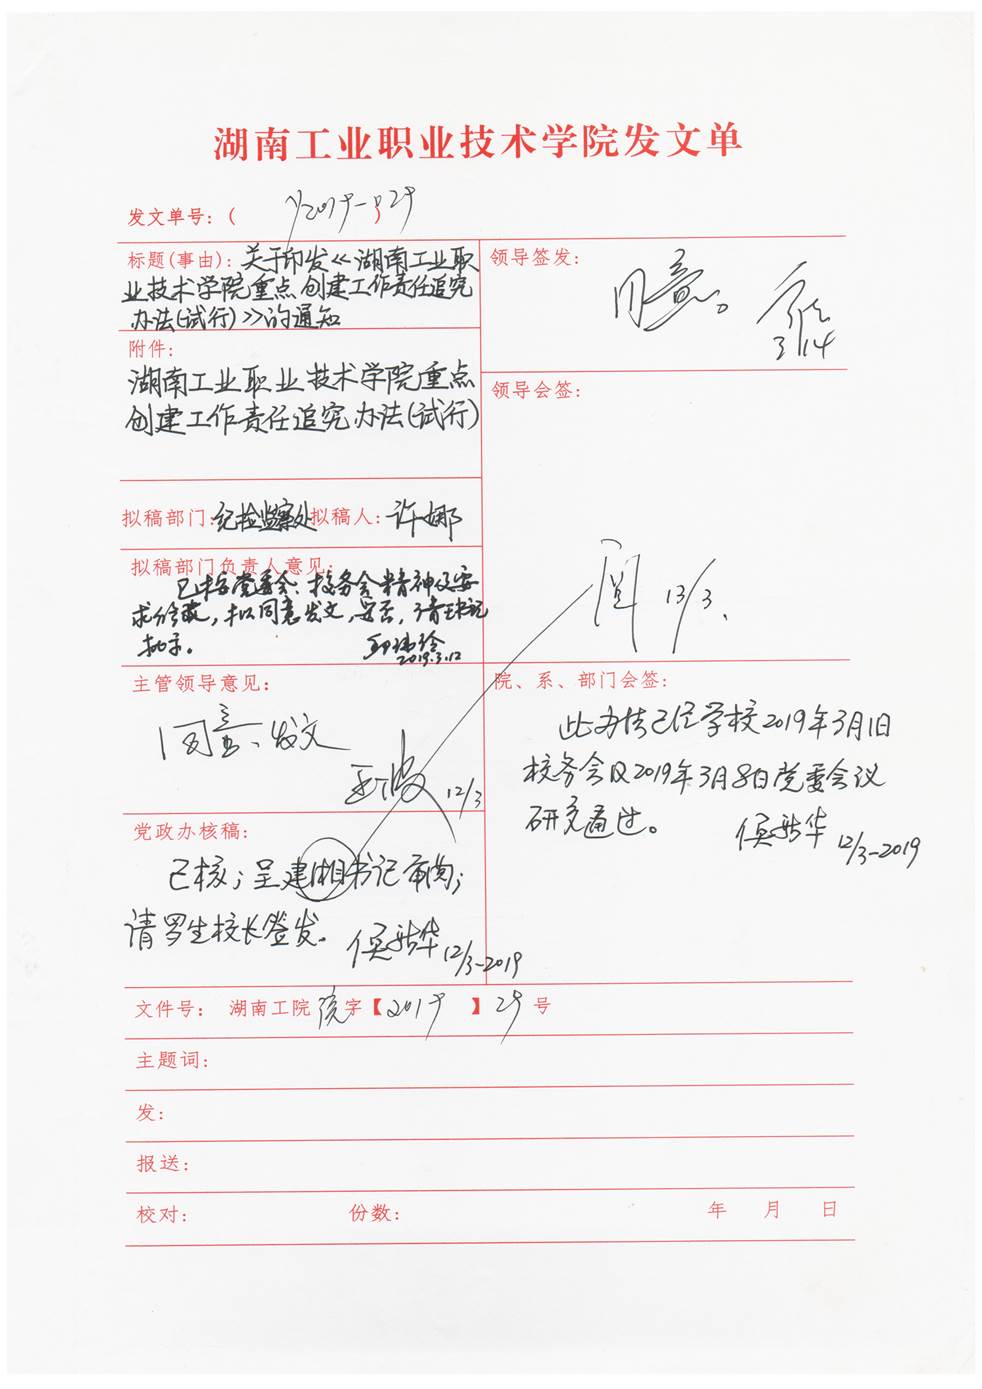 湖南工业职业技术学院发文单
发文单号：(2019-)29
标题(事由)：关于印发《湖南工业职
业技术学院重点创建工作责任追究
办法(试行)》的通知
附件：
湖南工业职业技术学院重点
创建工作责任追究办法(试行)
拟稿部门：纪检监察处 拟稿人：许娜
拟稿部门负责人意见：
已按党委会、校务会精神及要
求修改，拟同意发文，妥否，请书记
批示。
2019.3.12
主管领导意见：
同意发文
12/3
党政办核稿：
已核；呈建湘书记审阅；
请罗生校长签发。
12/3-2019
领导签发：
同意。
3/14
领导会签：
阅 13/3.
院、系、部门会签：
此办法已经学校2019年3月1日
校务会及2019年3月8日党委会议
研究通过。
12/3-2019
文件号： 湖南工院院字【2019】29号
主题词：
发：
报送：
校对： 份数： 年 月 日